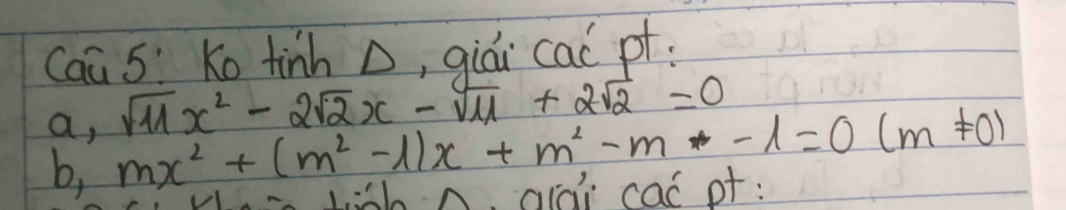 Câu 5: Ko tính Δ, giải các pt:
a, √11x² - 2√2x - √11 + 2√2 = 0
b, mx² + (m² - 1)x + m² - m - 1 = 0 (m ≠ 0)
tính Δ, giải các pt: